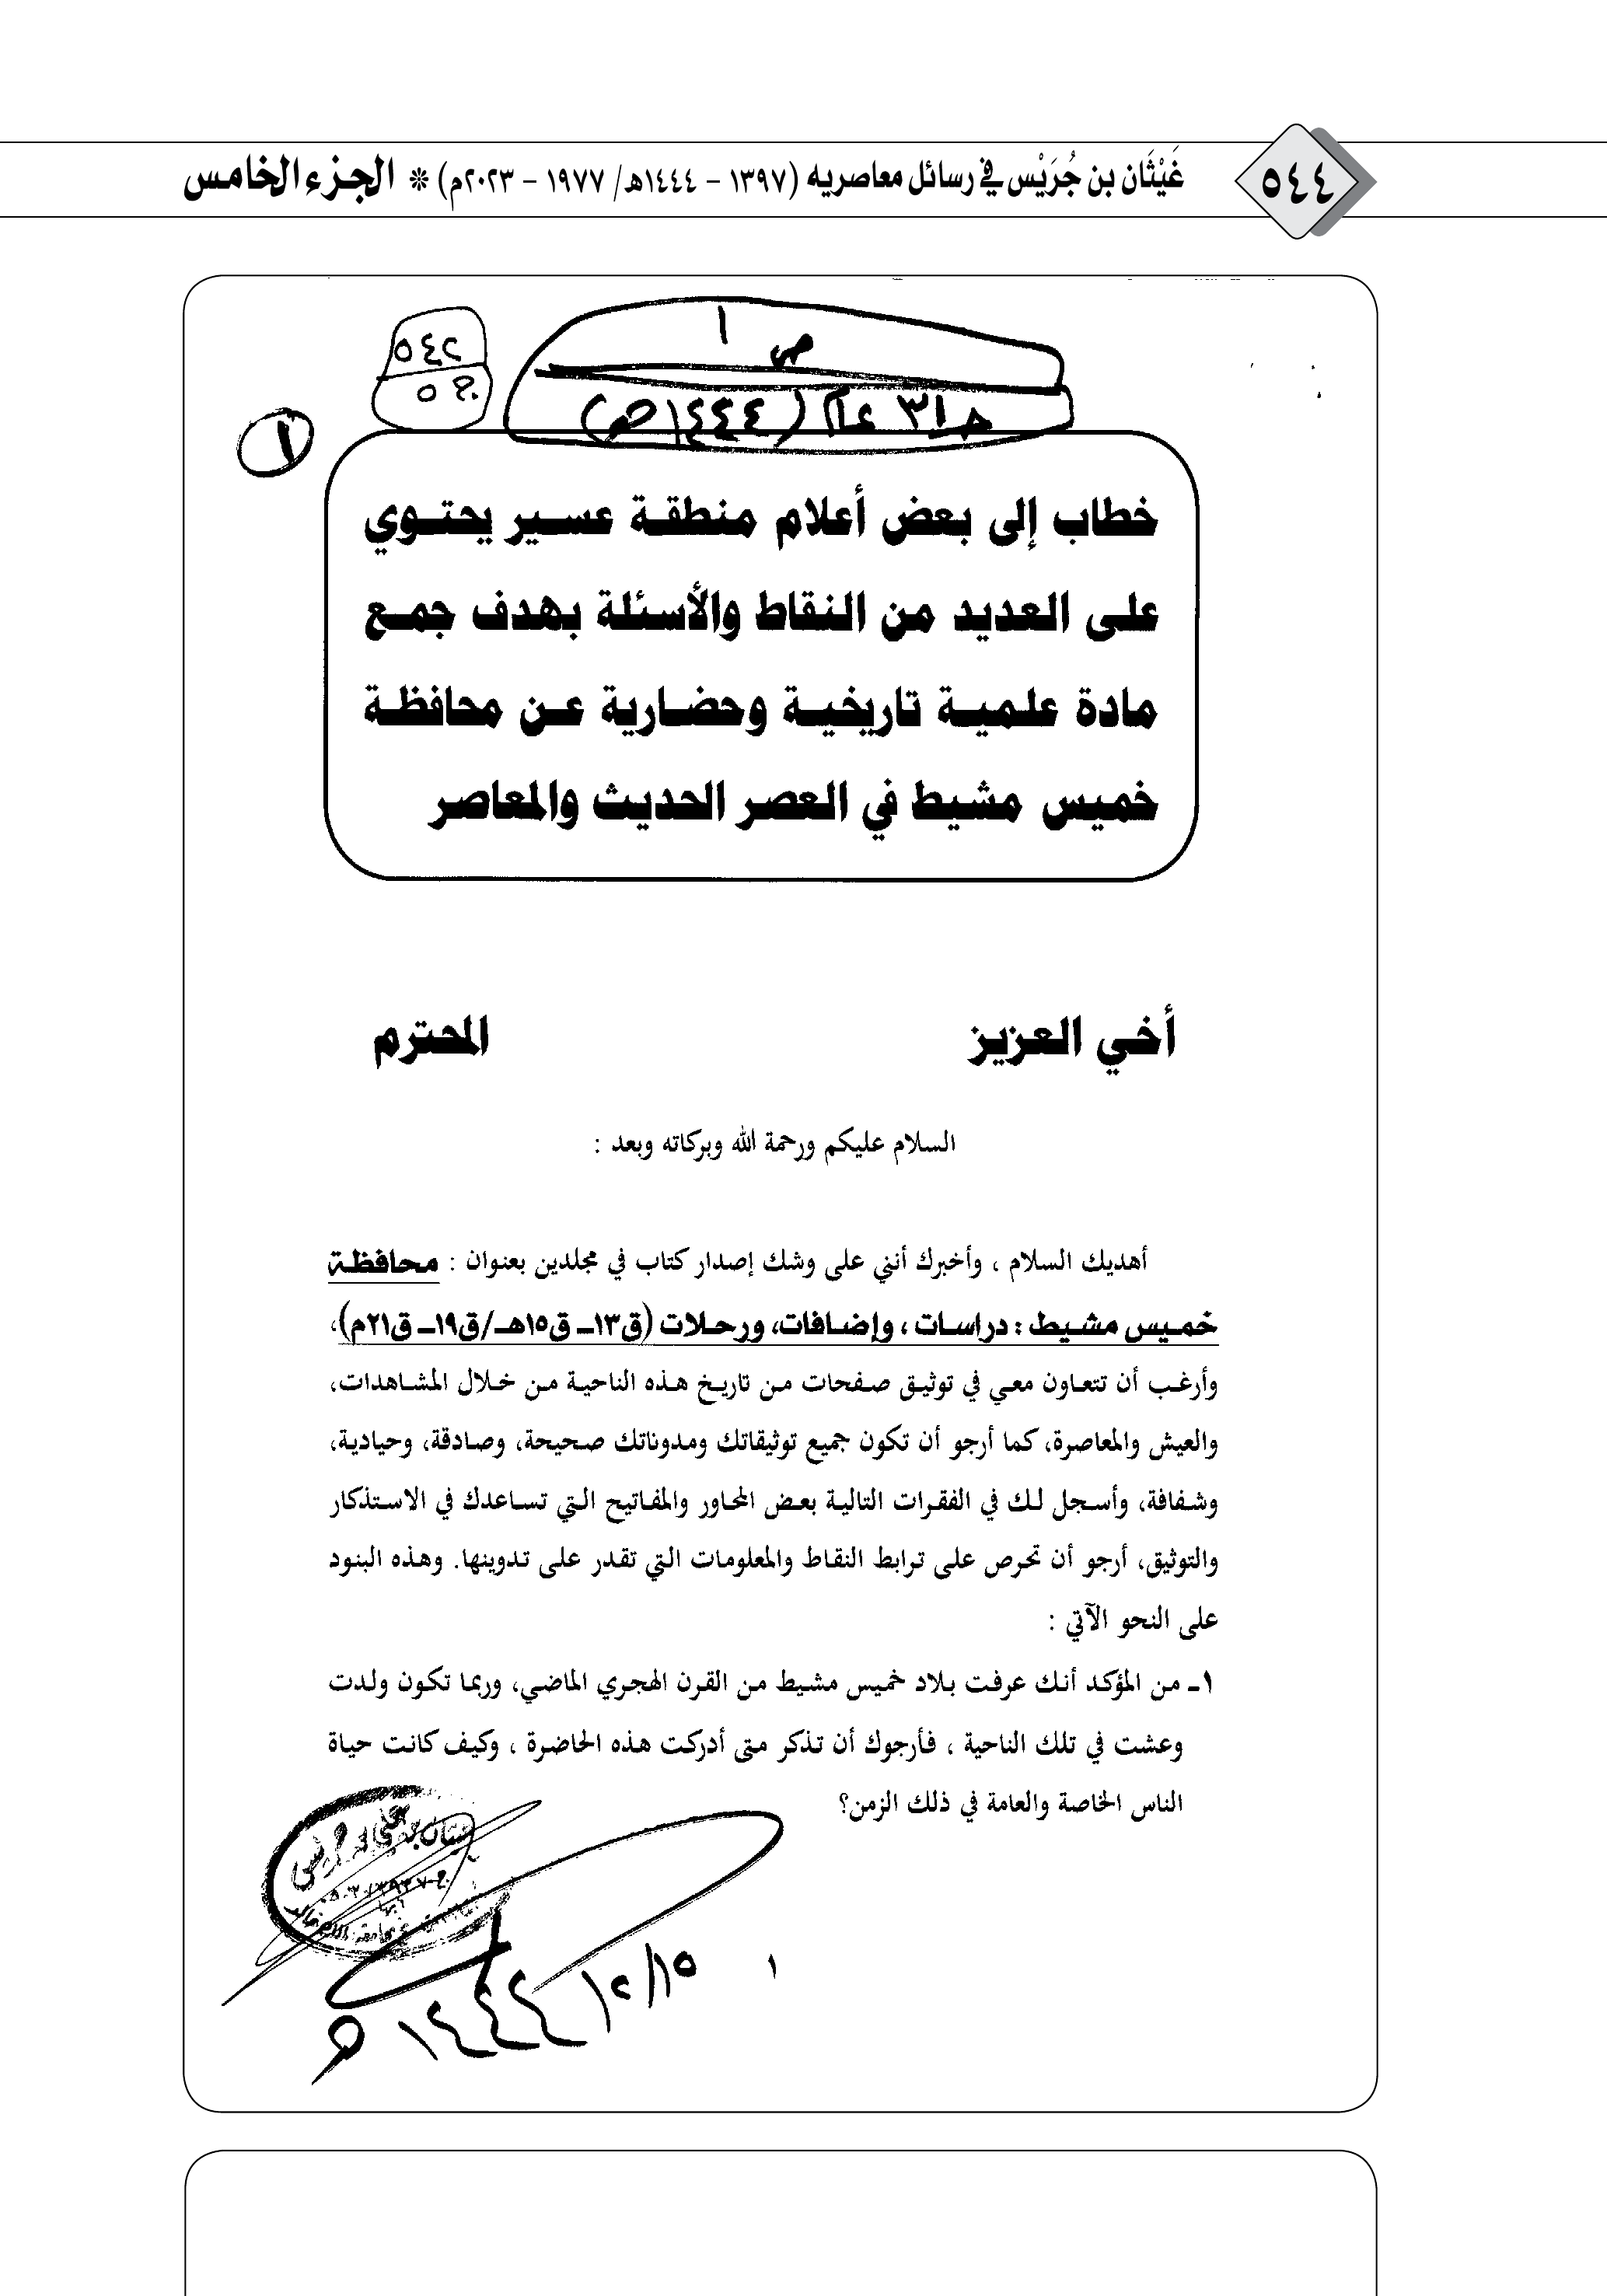 ٥٤٤
غَيْثَان بن جُرَيْس في رسائل معاصريه (١٣٩٧ – ١٤٤٤هـ/ ١٩٧٧ – ٢٠٢٣م) * الجزء الخامس
ص ١
٥٤٢
ج ٥
(١٤٤٤هـ)
١
خطاب إلى بعض أعلام منطقة عسير يحتوي
على العديد من النقاط والأسئلة بهدف جمع
مادة علمية تاريخية وحضارية عن محافظة
خميس مشيط في العصر الحديث والمعاصر
أخي العزيز المحترم
السلام عليكم ورحمة الله وبركاته وبعد :
أهديك السلام ، وأخبرك أنني على وشك إصدار كتاب في مجلدين بعنوان : محافظة
خميس مشيط : دراسات ، وإضافات، ورحلات (ق١٣ـ ق١٥هـ/ق١٩ـ ق٢١م)،
وأرغب أن تتعاون معي في توثيق صفحات من تاريخ هذه الناحية من خلال المشاهدات،
والعيش والمعاصرة، كما أرجو أن تكون جميع توثيقاتك ومدوناتك صحيحة، وصادقة، وحيادية،
وشفافة، وأسجل لك في الفقرات التالية بعض المحاور والمفاتيح التي تساعدك في الاستذكار
والتوثيق، أرجو أن تحرص على ترابط النقاط والمعلومات التي تقدر على تدوينها. وهذه البنود
على النحو الآتي :
١ـ من المؤكد أنك عرفت بلاد خميس مشيط من القرن الهجري الماضي، وربما تكون ولدت
وعشت في تلك الناحية ، فأرجوك أن تذكر متى أدركت هذه الحاضرة ، وكيف كانت حياة
الناس الخاصة والعامة في ذلك الزمن؟
١
١٥/٢/١٤٤٤هـ